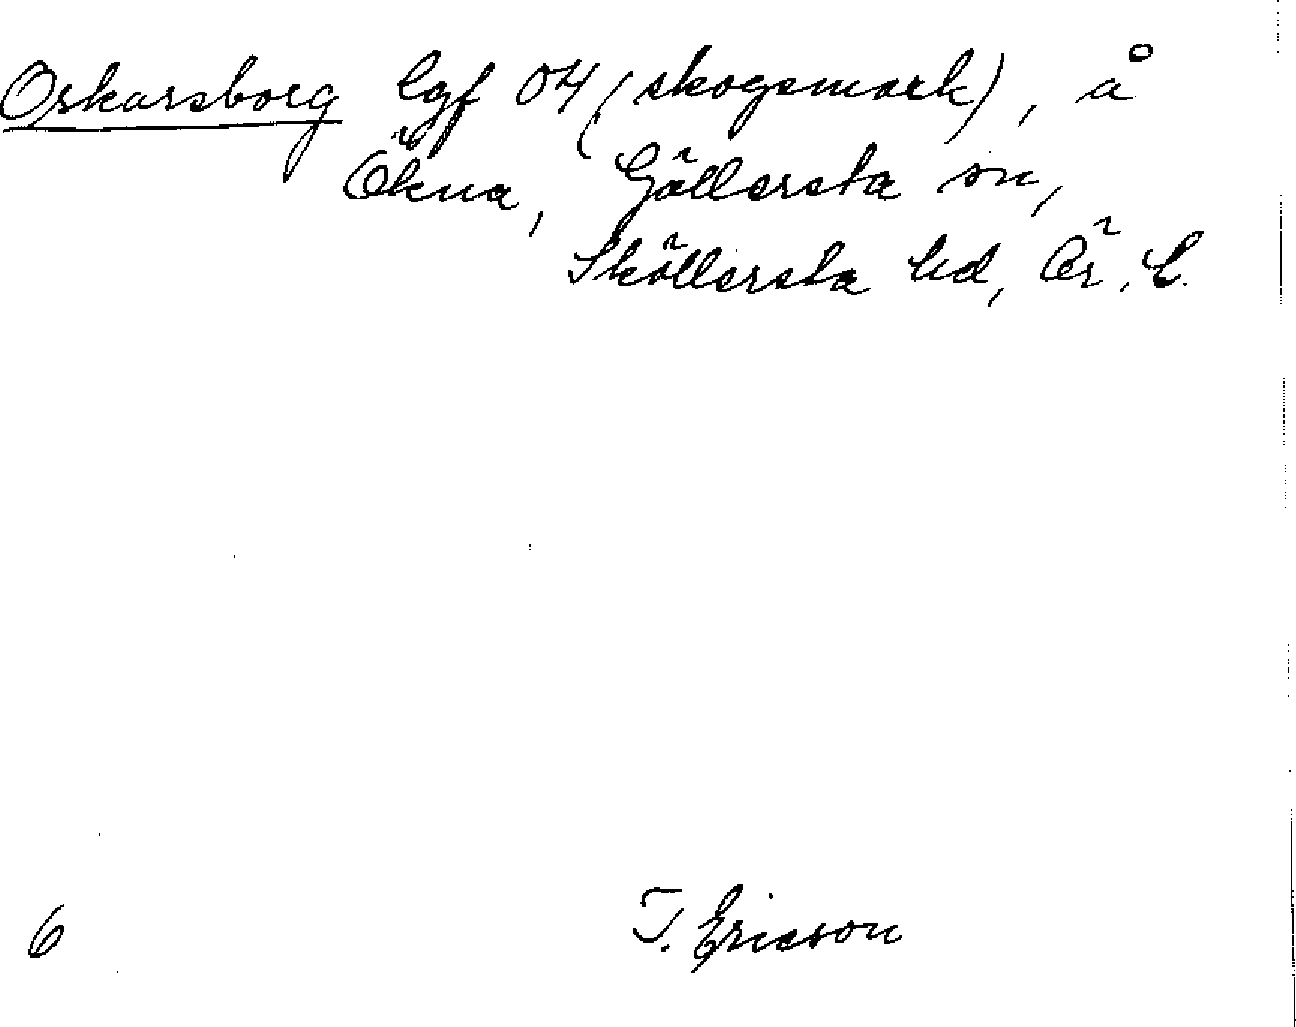 Oskarsborg lgf 04 (skogsmark), å
Ökna, Gällersta sn,
Sköllersta hd, Ör. l.
6 T. Ericson